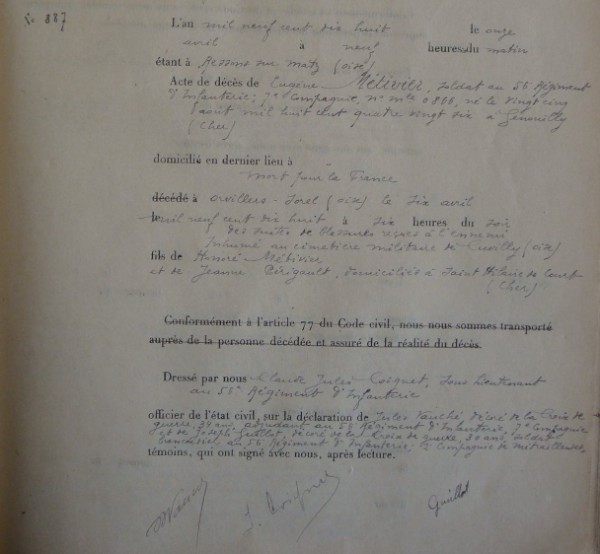 N° 887
L'an mil neuf cent dix huit le onze
avril à neuf heures du matin
étant à Ressons sur Matz (oise)
Acte de décès de Eugène Métivier, soldat au 56 Régiment
d'Infanterie, 7e Compagnie, n° mle 0866, né le vingt cinq
août mil huit cent quatre vingt dix à Genouilly
(Cher)
domicilié en dernier lieu à
mort pour la France
décédé à orvillers-Sorel (oise) le six avril
le mil neuf cent dix huit à six heures du soir
des suites de blessures reçues à l'ennemi
Inhumé au cimetière militaire de Cuvilly (oise)
fils de Honoré Métivier
et de Jeanne Périgault, domiciliés à Saint Hilaire de Court
(Cher)
Conformément à l'article 77 du Code civil, nous nous sommes transporté
auprès de la personne décédée et assuré de la réalité du décès.
Dressé par nous Claude Jules Coignet, sous Lieutenant
au 56e Régiment d'Infanterie
officier de l'état civil, sur la déclaration de Jules décoré de la Croix de
guerre, 39 ans, adjudant au 56 Régiment d'Infanterie, 7e Compagnie
et de Joseph Guillot, décoré de la Croix de guerre, 30 ans, soldat
brancardier au 56 Régiment d'Infanterie, Compagnie de mitrailleuses,
témoins, qui ont signé avec nous, après lecture.
J. Coignet
Guillot